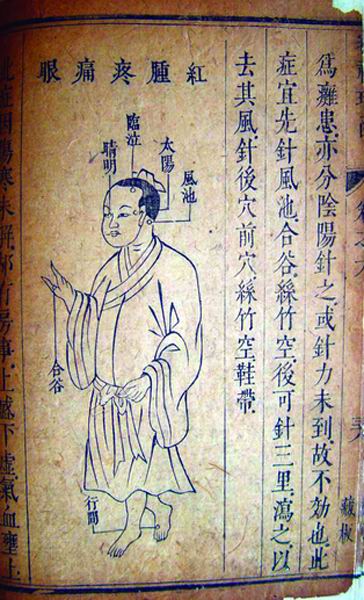 藏板
爲難患.亦分陰陽針之.或針力未到.故不効也.此
症宜先針風池.合谷.絲竹空.後可針三里.瀉之.以
去其風.針後穴前穴.絲竹空.鞋帶.
紅腫疼痛眼
風池
太陽
臨泣
睛明
合谷
行間
此症因傷寒未解却有房事.上
下虛.氣血壅上